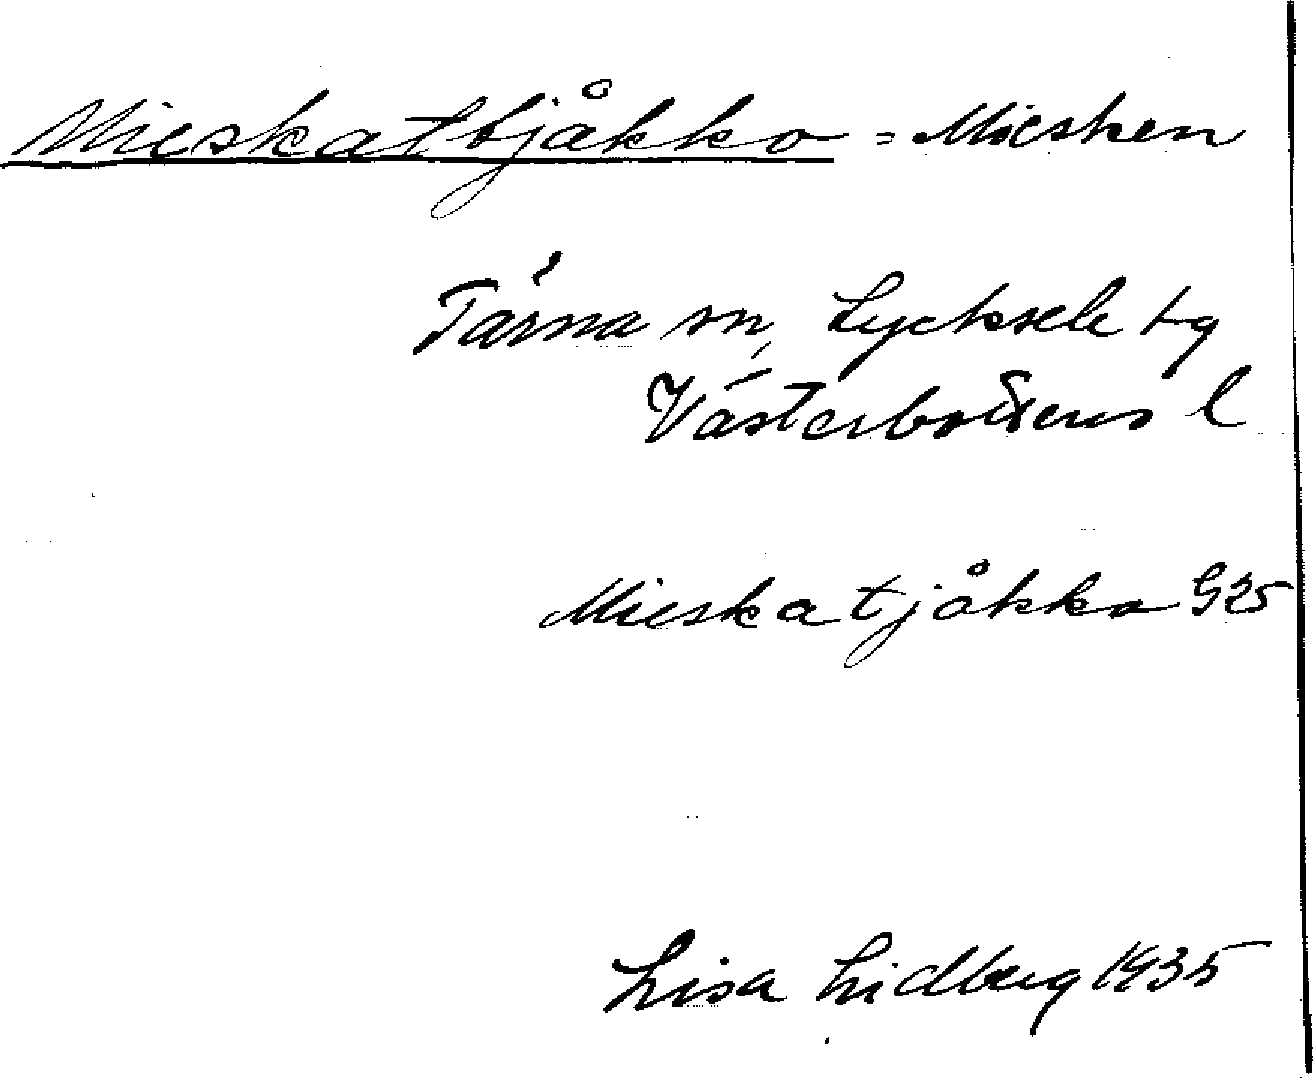 Mieskattjåkko = Miesken
Tärna sn, Lycksele tg
Västerbottens l
Mieskatjåkko G 25
Lisa Lidberg 1935